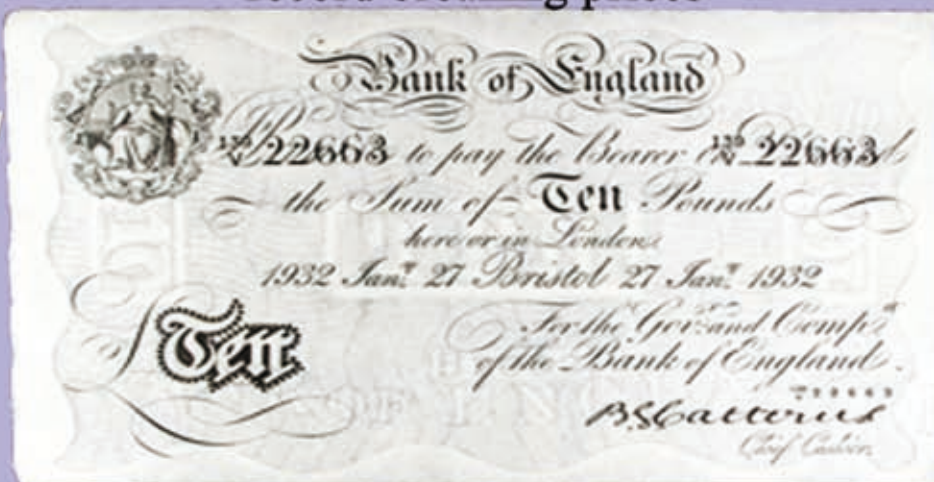 record breaking prices
Bank of England
139/V 22663 to pay the Bearer on 139/V 22663
the Sum of Ten Pounds
here or in London
1932 Jany 27 Bristol 27 Jany 1932
For the Govr and Compa
of the Bank of England.
£Ten
B.G. Catterns
Chief Cashier